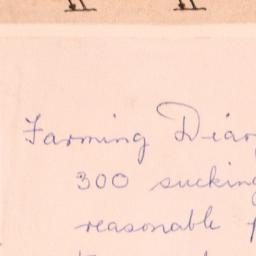 Farming Diary
300 sucking
reasonable